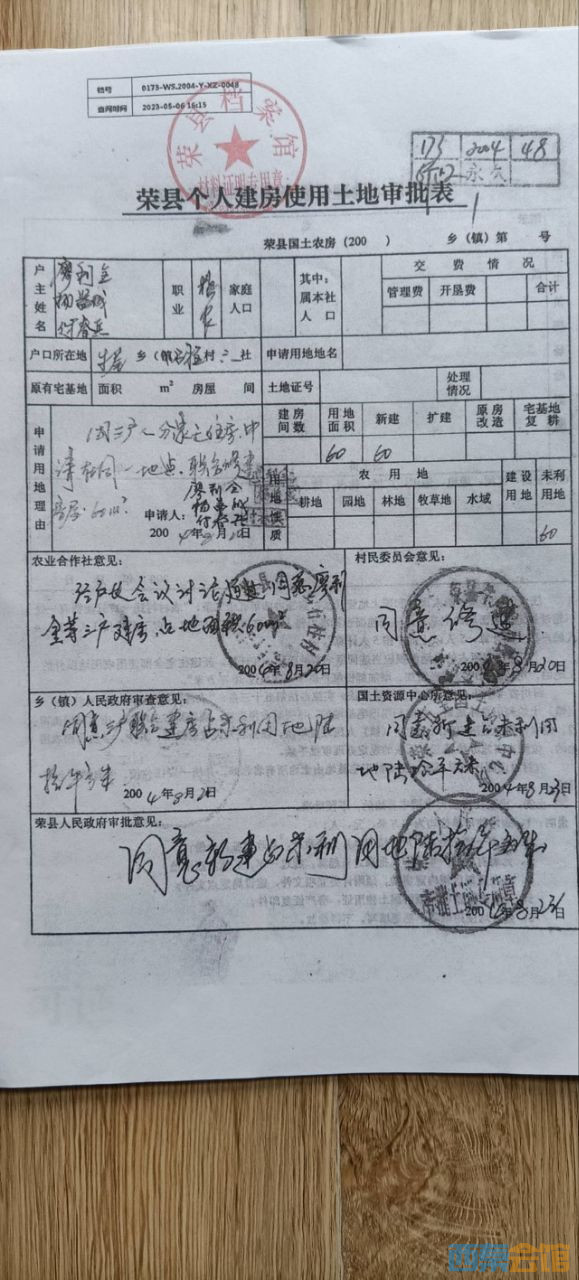 档号 0173-WS.2004-Y-XZ-0048
查阅时间 2023-05-06 16:15
荣县档案馆
材料证明专用章
173 2004 48
永久
荣县个人建房使用土地审批表
荣县国土农房(200 ) 乡(镇)第 号
户主姓名 廖利全
职业 务农
家庭人口
其中:属本社人口
交费情况
管理费 开垦费 合计
户口所在地 乡(镇) 村 社 申请用地地名
原有宅基地 面积 m² 房屋 间 土地证号 处理情况
申请用地理由
因三户人分家无住房.申
请在同一地点.联合修建
住房.60m²
申请人:廖利全
2004年8月20日
建房间数 用地面积 新建 扩建 原房改造 宅基地复耕
60 60
用地性质
农用地 建设用地 未利用地
耕地 园地 林地 牧草地 水域
60
农业合作社意见:
经户代会议讨论通过同意廖利
全等三户建房占地面积60m²
2004年8月20日
村民委员会意见:
同意修建.
2004年8月20日
乡(镇)人民政府审查意见:
同意三户联合建房占未利用地陆
拾平方米
2004年8月21日
国土资源中心所意见:
同意新建占未利用
地陆拾平方米
2004年8月23日
荣县人民政府审批意见:
同意新建占未利用地陆拾平方米
2004年8月23日
西祠会馆